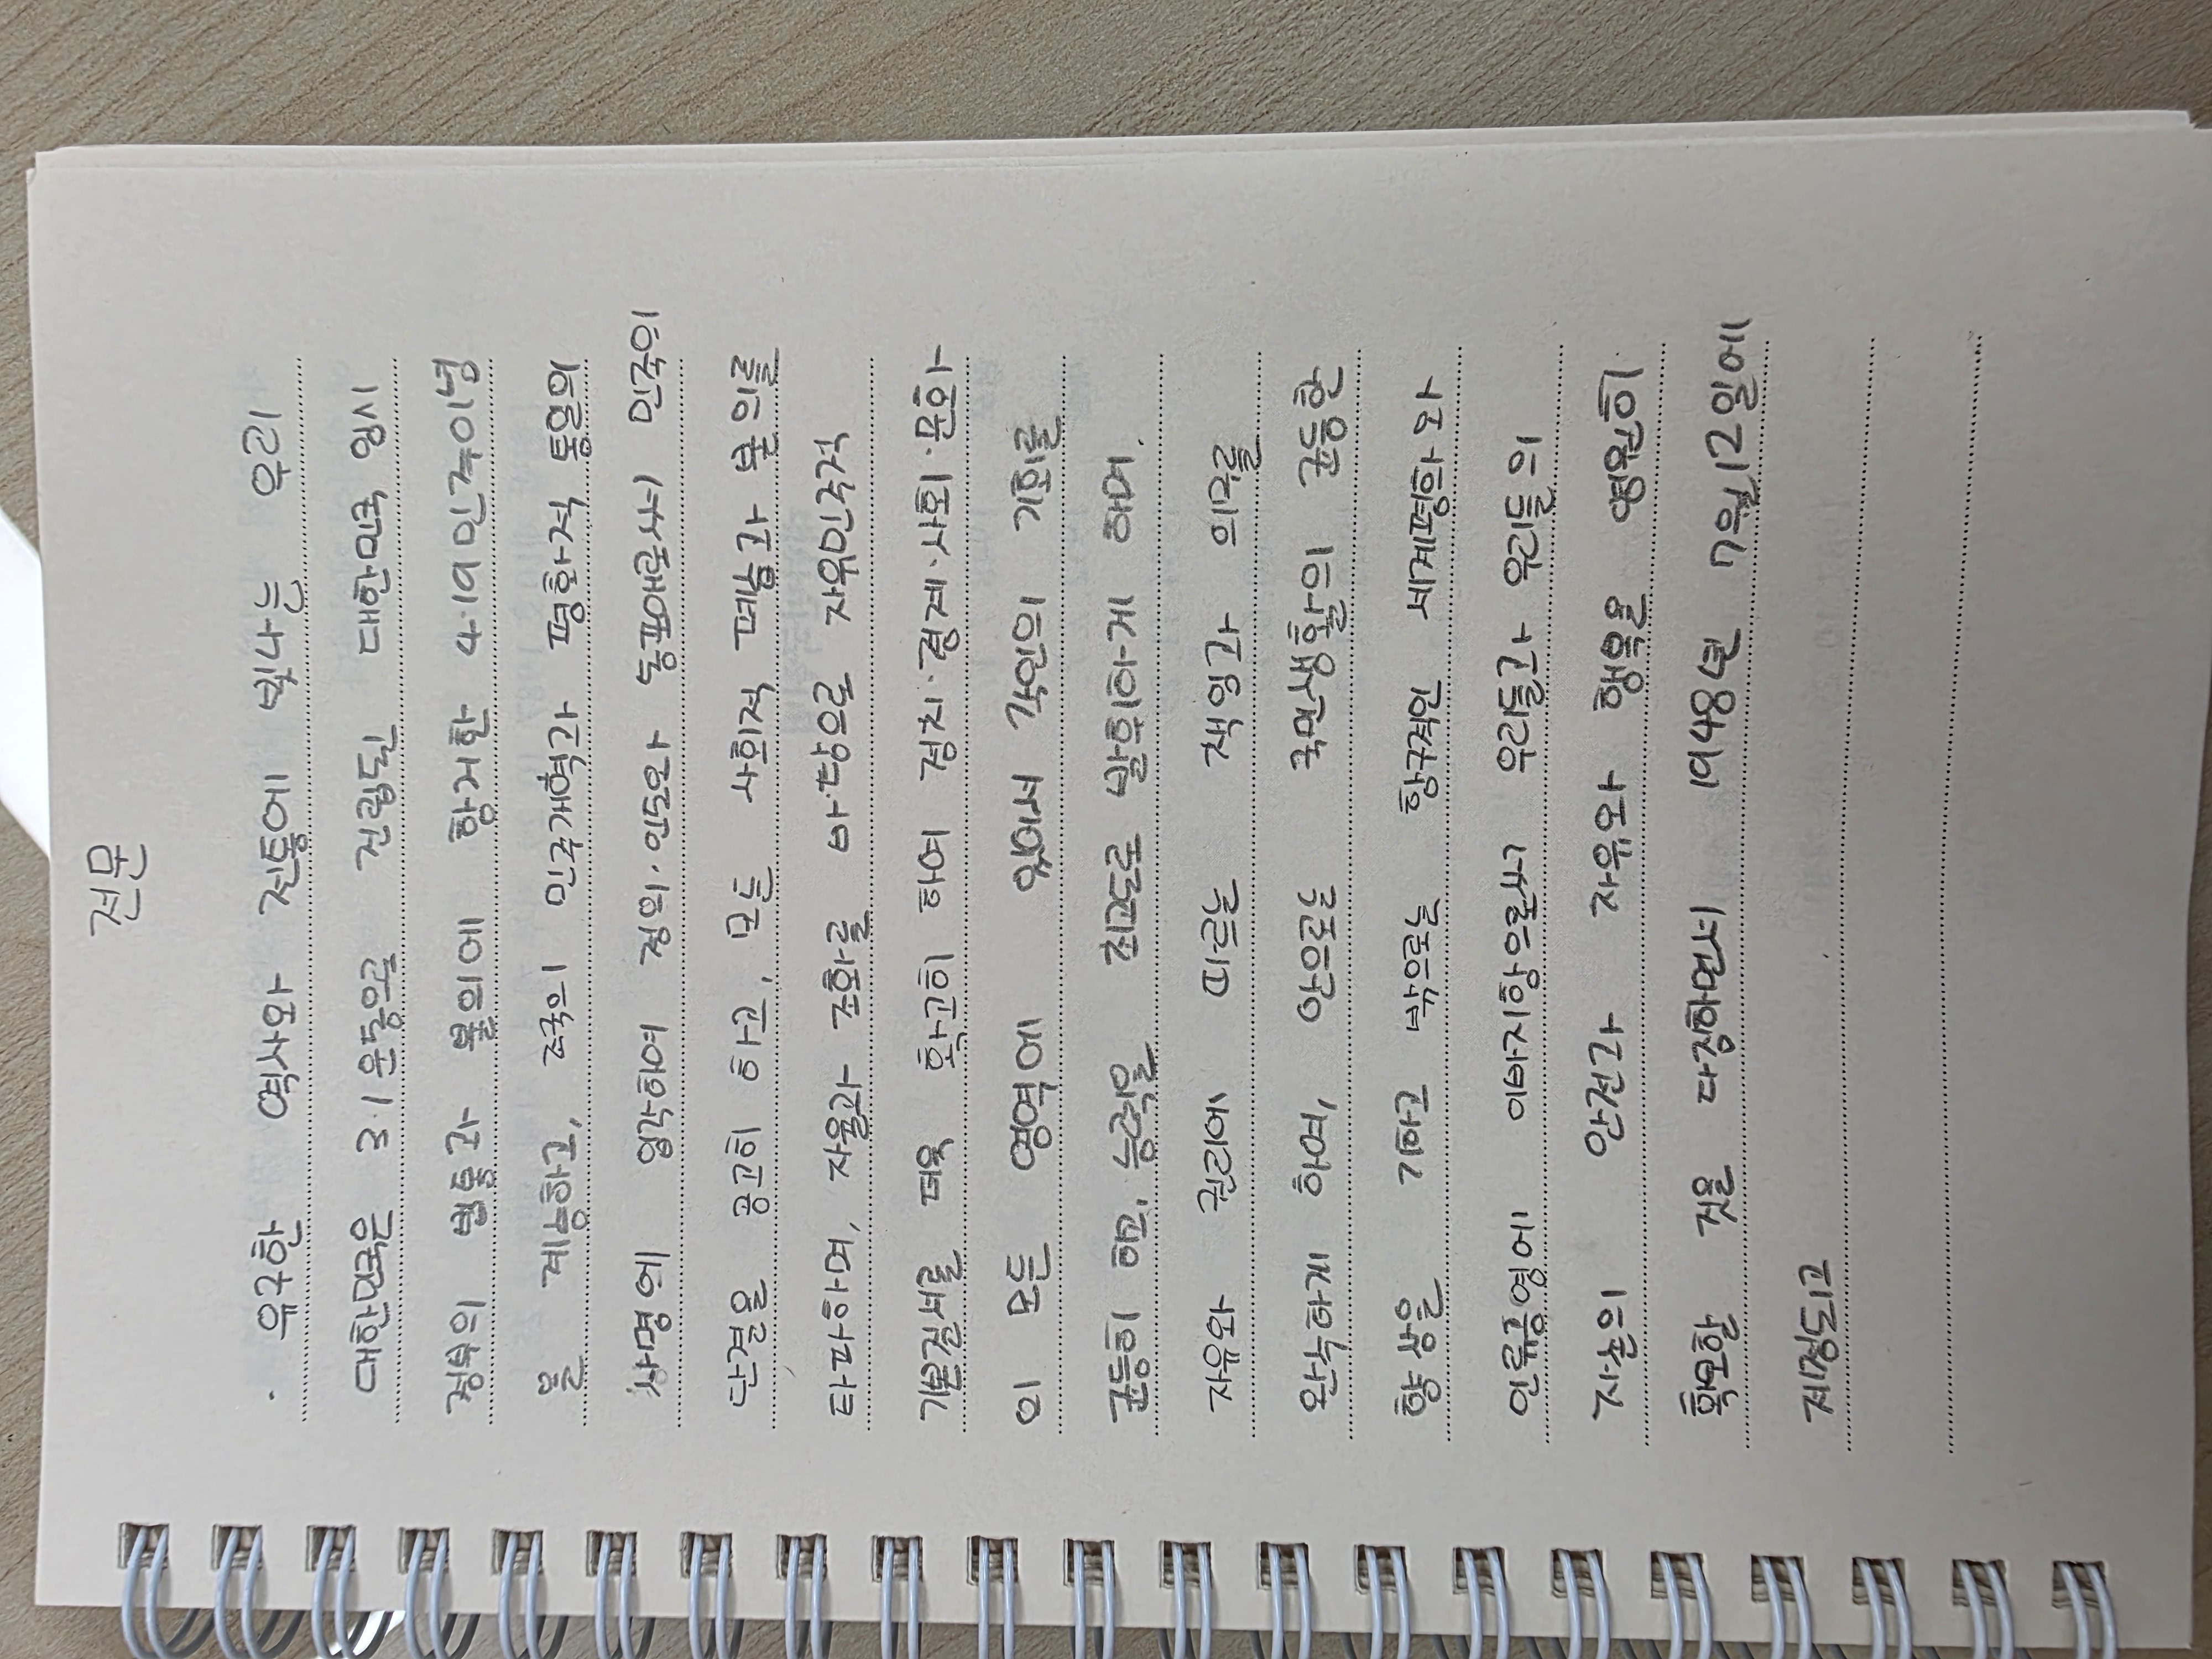 전문
· 유구한 역사와 전통에 빛나는 우리
대한민국은 3·1운동으로 건립된 대한민국 임시
정부의 법통과 불의에 항거한 4·19민주이념
을 계승하고, 조국의 민주개혁과 평화적 통일의
사명에 입각하여 정의·인도와 동포애로써 민족의
단결을 공고히 하고, 모든 사회적 폐습과 불의를
타파하며, 자율과 조화를 바탕으로 자유민주적
기본질서를 더욱 확고히 하여 정치·경제·사회·문화
의 모든 영역에 있어서 각인의 기회를
균등히 하고, 능력을 최고도로 발휘하게 하며
자유와 권리에 따르는 책임과 의무를
완수하게 하여, 안으로는 국민생활의 균등한
향상을 기하고 밖으로는 항구적인 세계평화와
인류공영에 이바지함으로써 우리들과 우리들의
자손의 안전과 자유와 행복을 영원히
확보할 것을 다짐하면서 1948년 7월12일에
제정되고